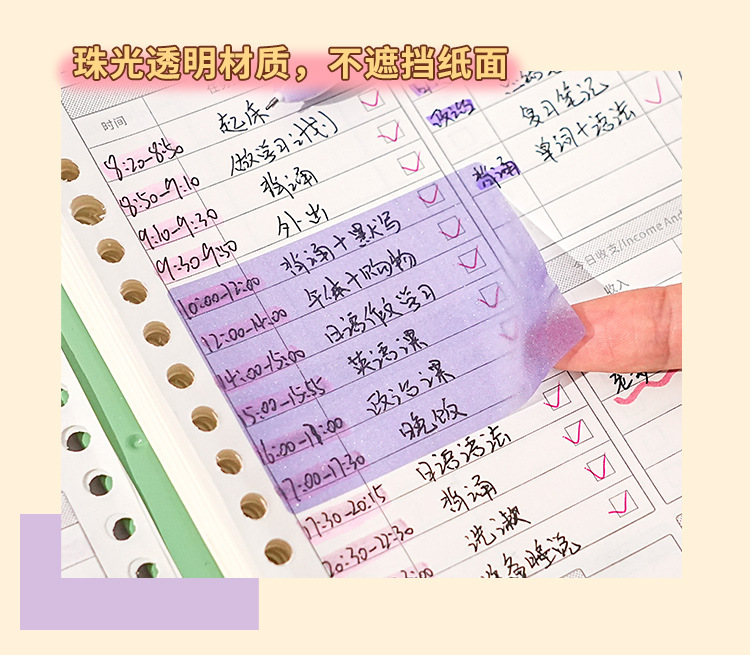 珠光透明材质，不遮挡纸面
时间
8:20-8:50 起床
8:50-9:10 做学习计划
9:10-9:30 背诵
9:30-9:50 外出
10:00-12:00 背诵+默写
12:00-14:00 午休+购物
14:00-15:00 日语做学习
15:00-15:55 英语课
16:00- 政治课
17:00-17:30 晚饭
17:30-20:15 日语语法
20:30-22:30 背诵
:00 洗漱
准备睡
政治 复习笔记
背诵 单词+语法
今日收支/Income And
收入